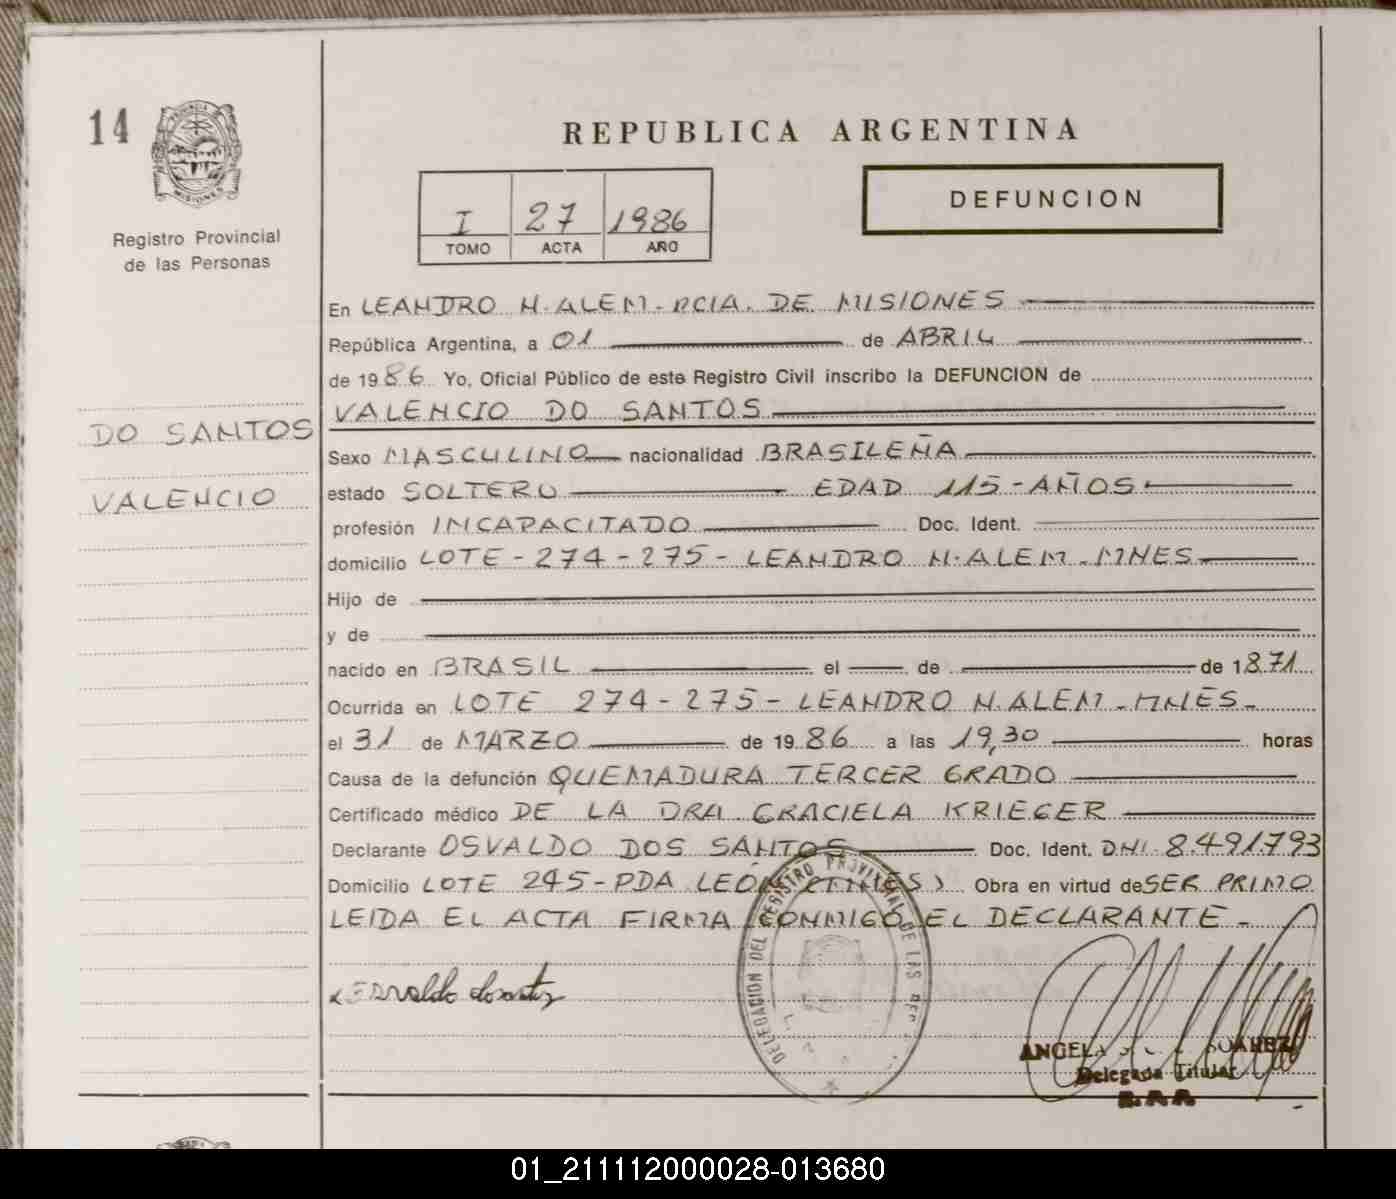 14
PROVINCIA DE
MISIONES
Registro Provincial
de las Personas
REPUBLICA ARGENTINA
I 27 1986
TOMO ACTA AÑO
DEFUNCION
En LEANDRO N. ALEM - PCIA. DE MISIONES
República Argentina, a 01 de ABRIL
de 1986 Yo, Oficial Público de este Registro Civil inscribo la DEFUNCION de
VALENCIO DO SANTOS
DO SANTOS
VALENCIO
Sexo MASCULINO nacionalidad BRASILEÑA
estado SOLTERO EDAD 115 - AÑOS
profesión INCAPACITADO Doc. Ident.
domicilio LOTE - 274 - 275 - LEANDRO N. ALEM - MNES
Hijo de
y de
nacido en BRASIL el de de 1871
Ocurrida en LOTE 274 - 275 - LEANDRO N. ALEM - MNES -
el 31 de MARZO de 1986 a las 19,30 horas
Causa de la defunción QUEMADURA TERCER GRADO
Certificado médico DE LA DRA. GRACIELA KRIEGER
Declarante OSVALDO DOS SANTOS Doc. Ident. DNI. 8.491.793
Domicilio LOTE 245 - PDA LEÓN (MNES) Obra en virtud de SER PRIMO
LEIDA EL ACTA FIRMA CONMIGO EL DECLARANTE -
DELEGACION DEL REGISTRO PROVINCIAL DE LAS
ANGELA SUAREZ
Delegada Titular
01_211112000028-013680